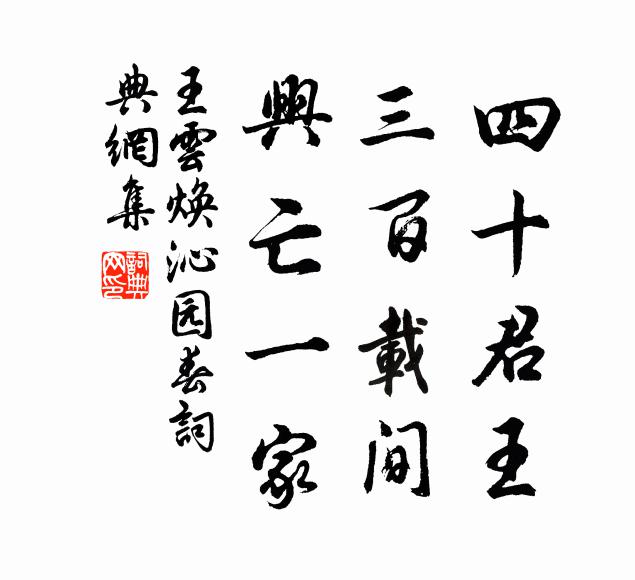 四十君王
三百載間
興亡一家
王雲煥沁园春詞
典網集
詞典网印